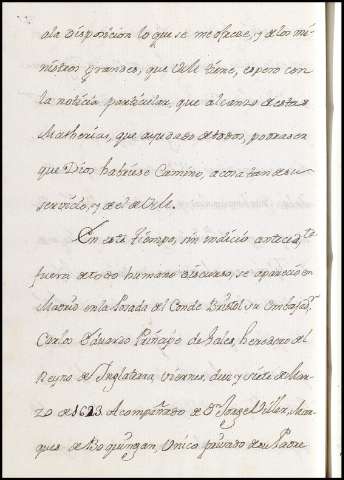 ala Disposicion lo que se me ofrece, y delos mi-
nistros grandes, que V.M. tiene, espero con
la noticia particular, que alcanza destas
Matherias, que ayudado detodos, podrá ser
que Dios habriese Camino, a cosa tan de su
servicio, y del de V.M.
En este tiempo, sin indicio anteced.te
fuera de todo humano discurso, se aparecio en
Madrid en la Posada del Conde Bristol su Embajad.r
Carlos Eduardo Principe de Gales, heredero del
Reyno de Inglaterra, viernes, diez y siete de Mar-
zo de 1623 Acompañado de D.n Jorge Viller, Mar-
ques de Boquingan, Unico privado de su Padre